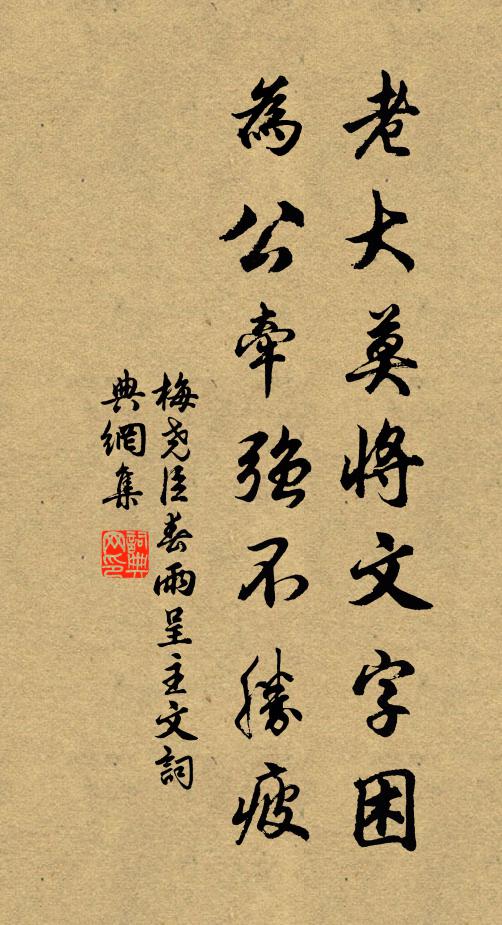 老大莫將文字困
為公牽強不勝疲
梅堯臣春雨呈主文詞
典網集
詞典
网印